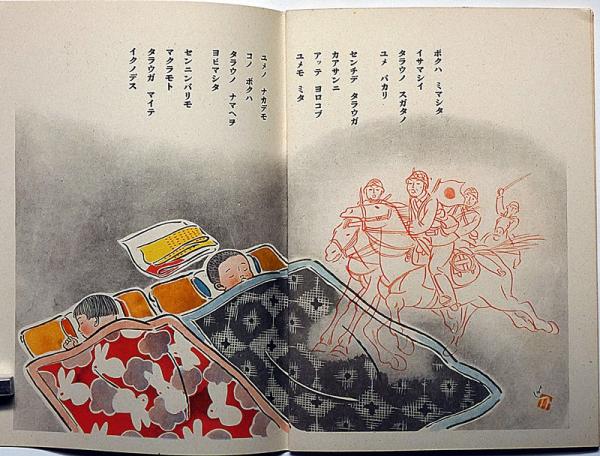 ボクハ ミマシタ
イサマシイ
タラウノ スガタノ
ユメ バカリ
センチデ タラウガ
カアサンニ
アッテ ヨロコブ
ユメモ ミタ
ユメノ ナカデモ
コノ ボクハ
タラウノ ナマヘヲ
ヨビマシタ
センニンバリモ
マクラモト
タラウガ マイテ
イクノデス